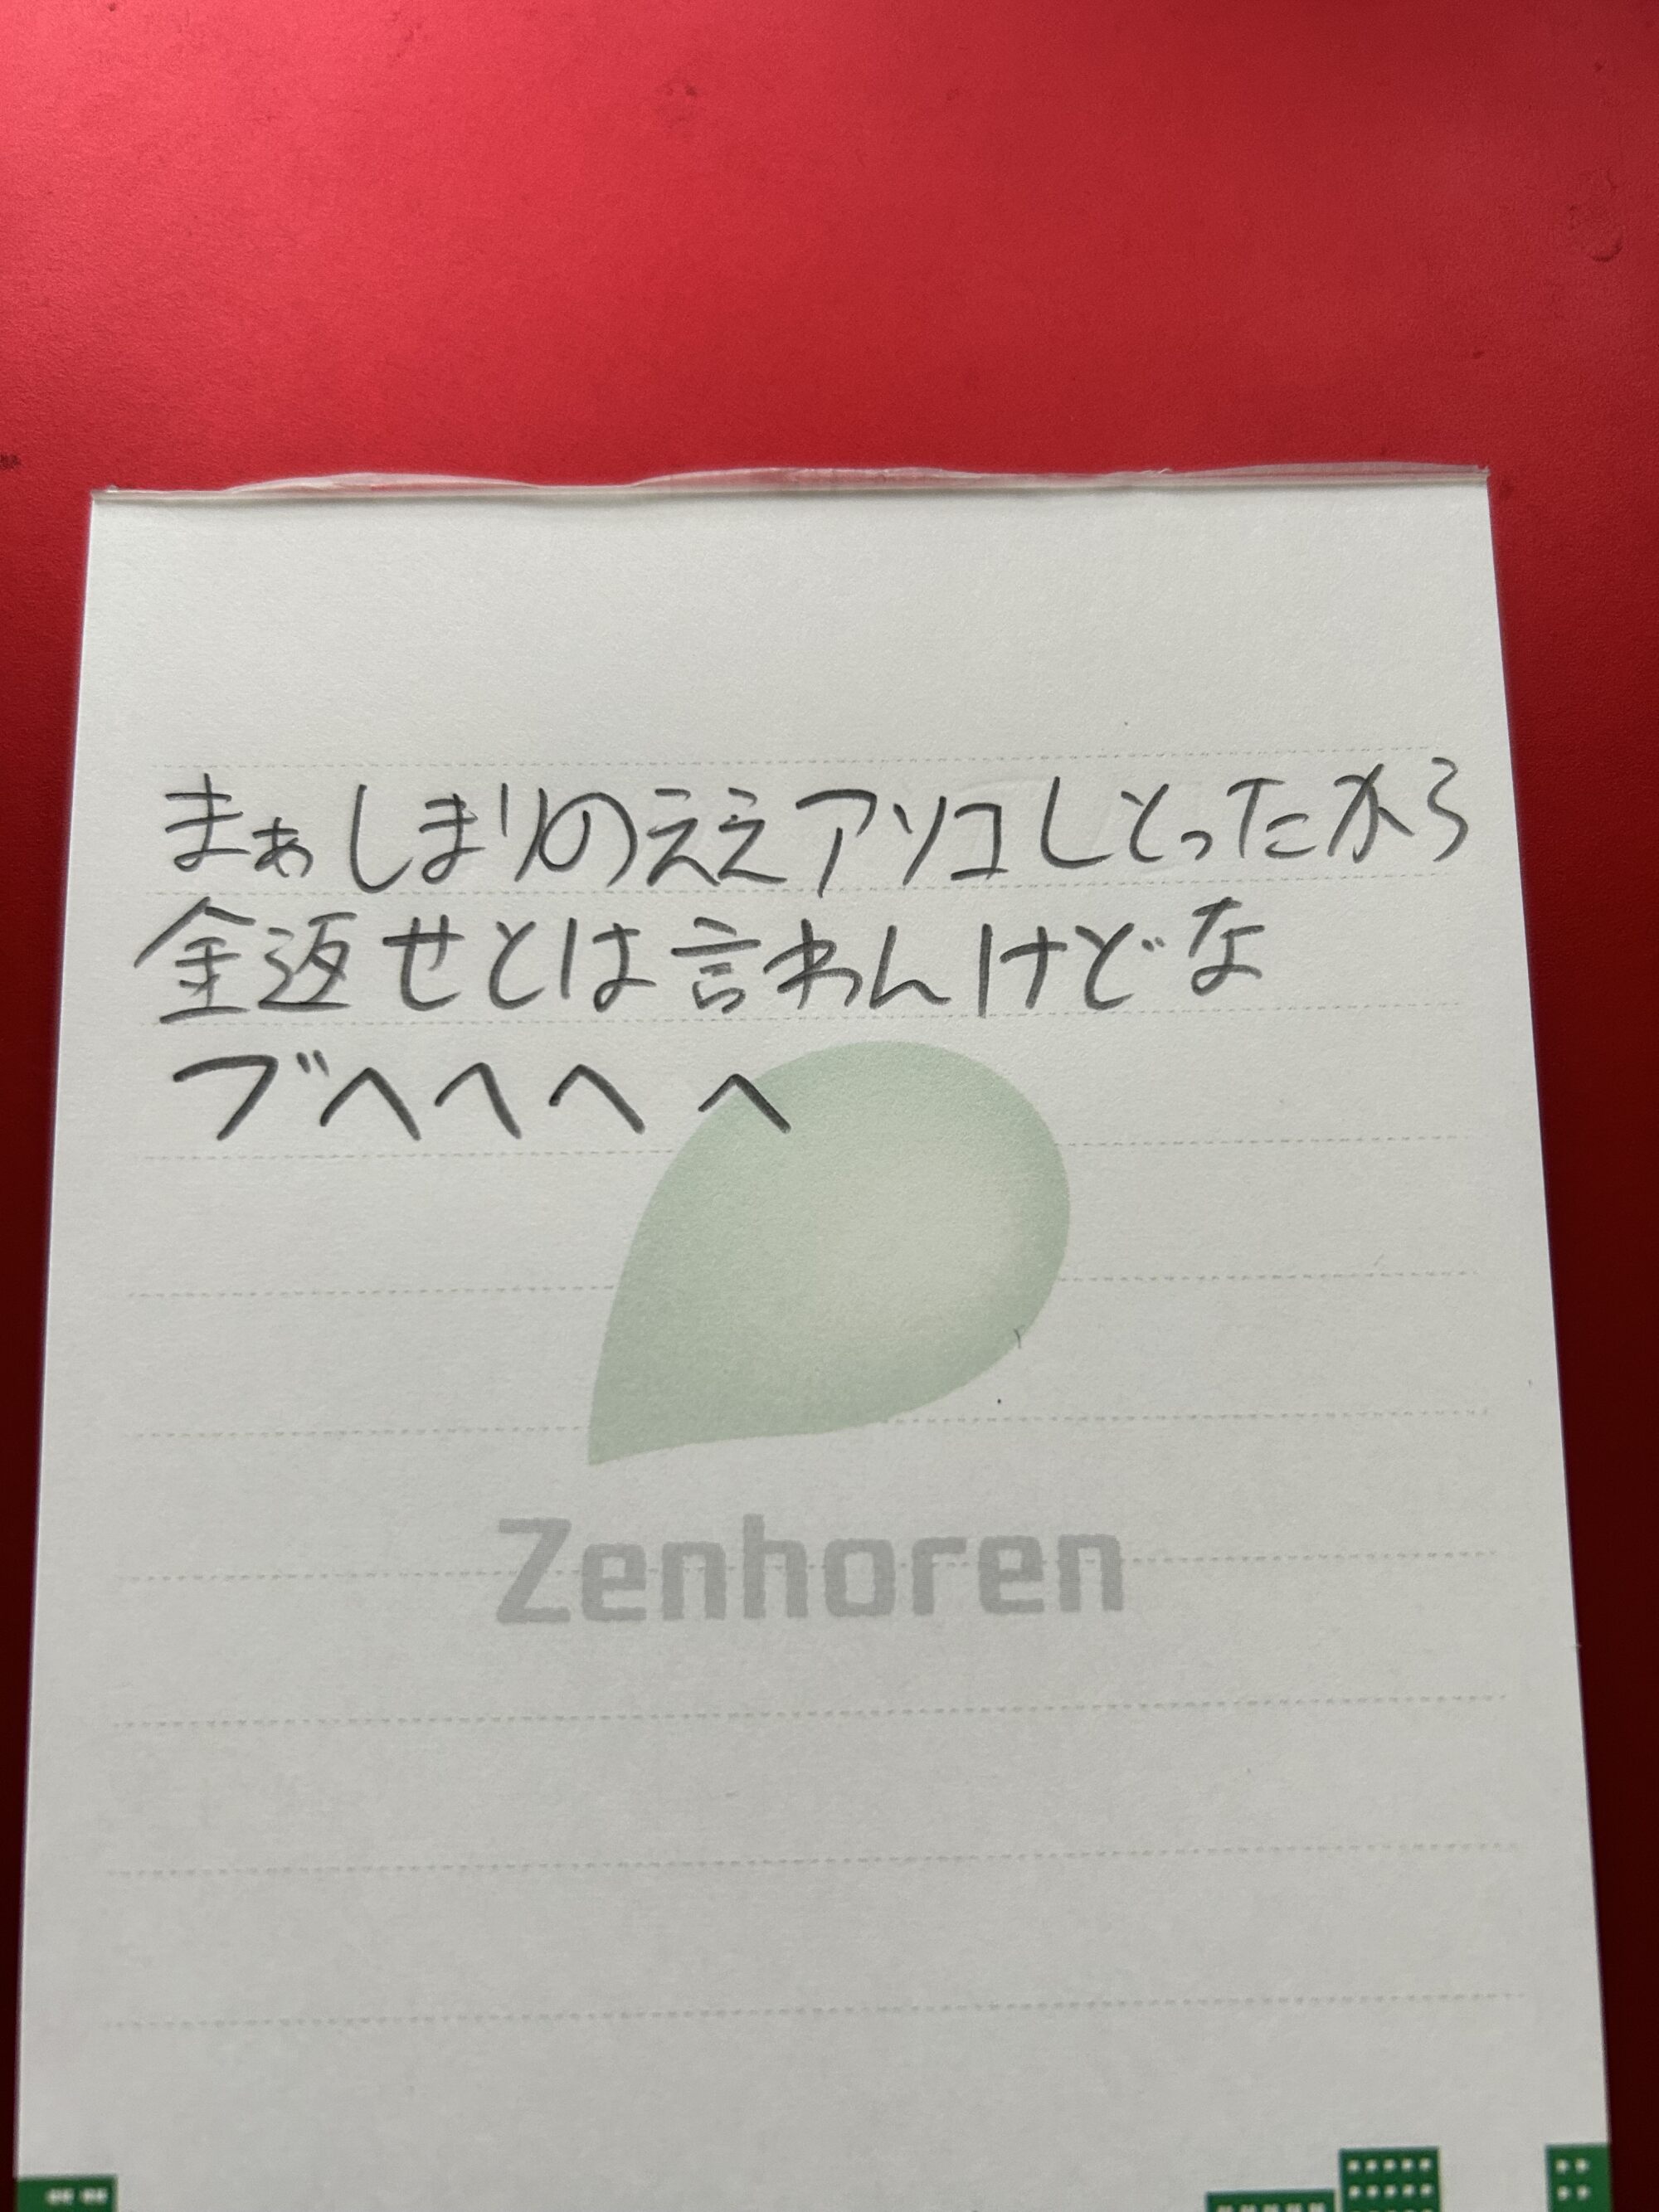 まぁしまりのええアソコしとったから
金返せとは言わんけどな
ブヘヘヘヘ
Zenhoren